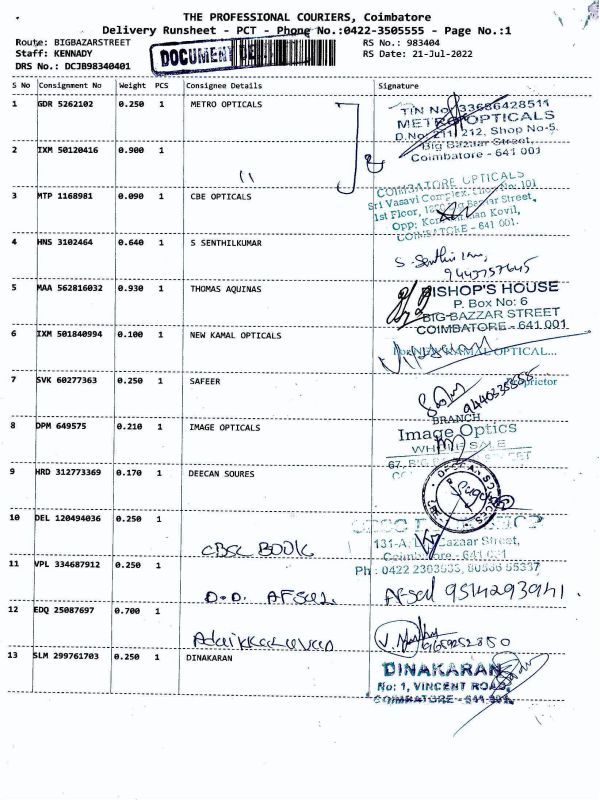 THE PROFESSIONAL COURIERS, Coimbatore
Delivery Runsheet - PCT - Phone No.:0422-3505555 - Page No.:1
Route: BIGBAZARSTREET RS No.: 983404
Staff: KENNADY DOCUMENT RS Date: 21-Jul-2022
DRS No.: DCJB98340401
S No Consignment No Weight PCS Consignee Details Signature
1 GDR 5262102 0.250 1 METRO OPTICALS
TIN No: 33686428511
METRO OPTICALS
D.No: 211, 212, Shop No-5.
Big Bazaar Street,
Coimbatore - 641 001
2 IXM 50120416 0.900 1 "
3 MTP 1168981 0.090 1 CBE OPTICALS
COIMBATORE OPTICALS
Sri Vasavi Complex, No: 101
1st Floor, Bazaar Street,
Opp: Kovil,
COIMBATORE - 641 001.
4 HNS 3102464 0.640 1 S SENTHILKUMAR
5 MAA 562816032 0.930 1 THOMAS AQUINAS
BISHOP'S HOUSE
P. Box No: 6
BIG-BAZZAR STREET
COIMBATORE - 641 001
6 IXM 501840994 0.100 1 NEW KAMAL OPTICALS
for NEW KAMAL OPTICAL...
Proprietor
7 SVK 60277363 0.250 1 SAFEER
8 DPM 649575 0.210 1 IMAGE OPTICALS
BRANCH
Image Optics
WHOLE SALE
9 HRD 312773369 0.170 1 DEECAN SOURES
10 DEL 120494036 0.250 1 CBSC BOOK
131-A, Bazaar Street,
Coimbatore - 641 001
Ph : 0422 2303533,
11 VPL 334687912 0.250 1 D.D. AFSAL Afsal
12 EDQ 25087697 0.700 1 Adaikkalavan
13 SLM 299761703 0.250 1 DINAKARAN
DINAKARAN
No: 1, VINCENT ROAD,
COIMBATORE - 641 001.